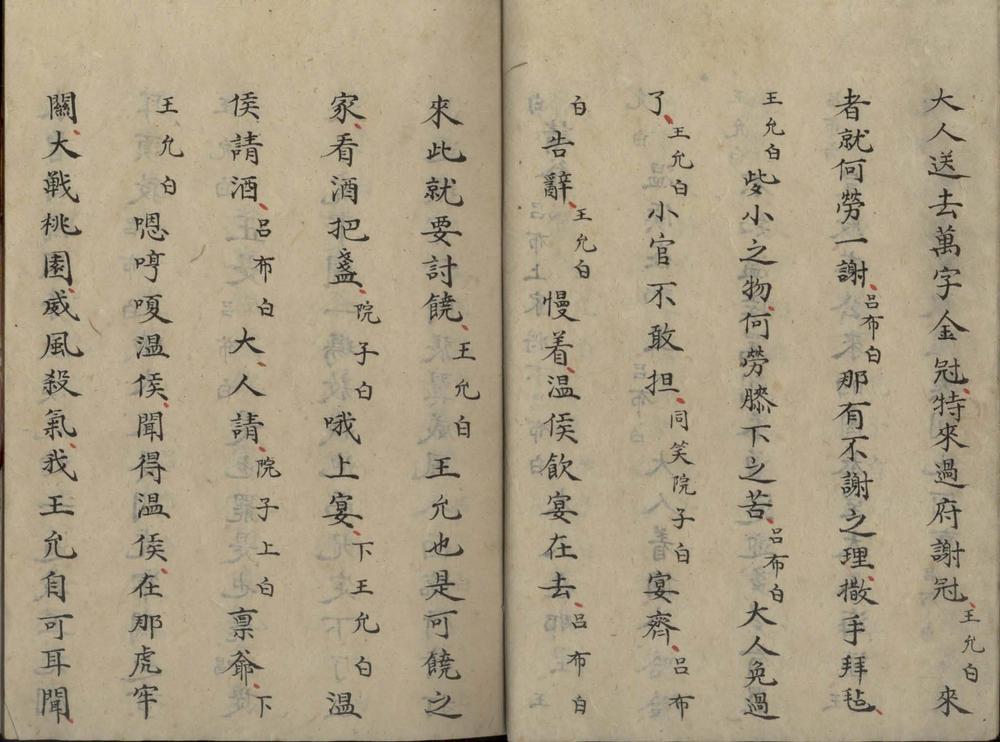 大人送去萬字金冠、特來過府謝冠、王允白來
者就何勞一謝、呂布白那有不謝之理、撒手拜毡、
王允白些小之物、何勞膝下之苦、呂布白大人免過
了、王允白小官不敢担、同笑院子白宴齊、呂布
白告辭、王允白慢着、温侯飲宴在去、呂布白
來此就要討饒、王允白王允也是可饒之
家、看酒把盞、院子白哦上宴、下王允白温
侯請酒、呂布白大、人請、院子上白禀爺、下
王允白嗯哼嗄温侯、聞得温侯、在那虎牢
關、大戰桃園、威風殺氣、我王允自可耳聞、